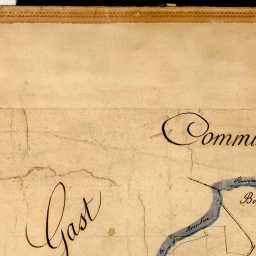 Commu
Gast
Bo